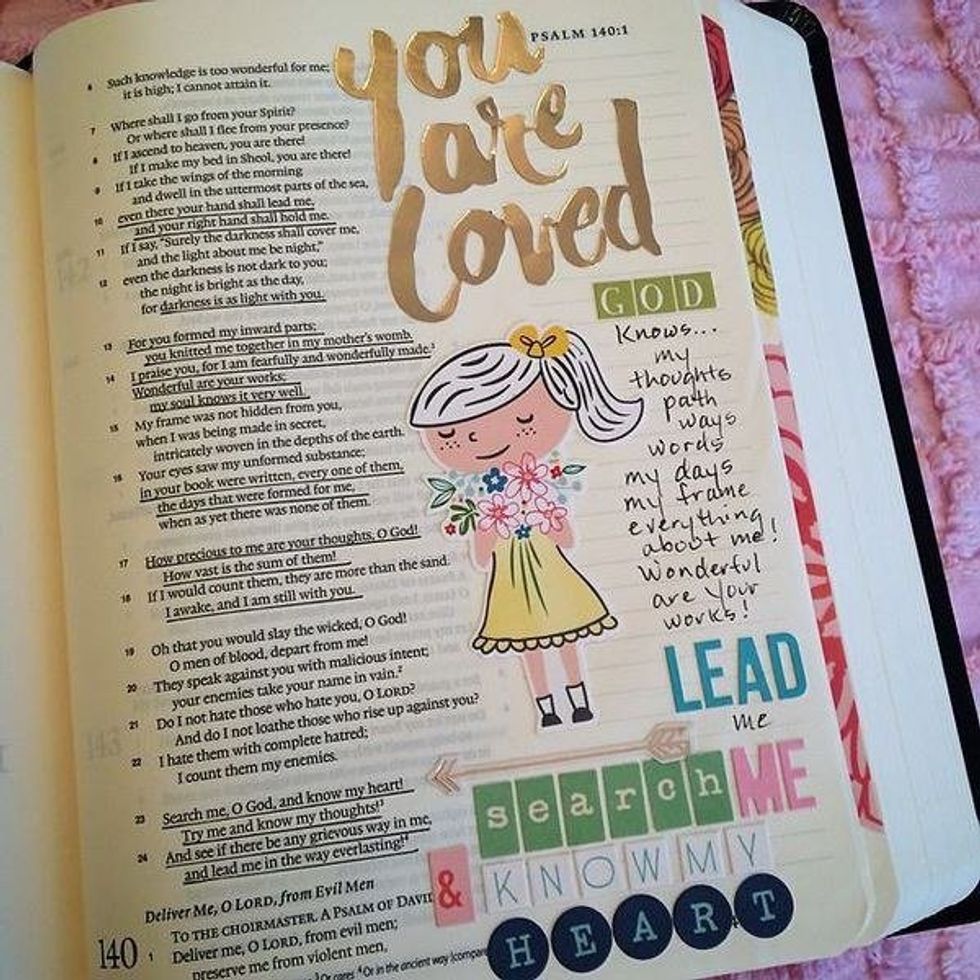 PSALM 140:1
you
are
loved
6 Such knowledge is too wonderful for me;
it is high; I cannot attain it.
7 Where shall I go from your Spirit?
Or where shall I flee from your presence?
8 If I ascend to heaven, you are there!
If I make my bed in Sheol, you are there!
9 If I take the wings of the morning
and dwell in the uttermost parts of the sea,
10 even there your hand shall lead me,
and your right hand shall hold me.
11 If I say, “Surely the darkness shall cover me,
and the light about me be night,”
12 even the darkness is not dark to you;
the night is bright as the day,
for darkness is as light with you.
13 For you formed my inward parts;
you knitted me together in my mother's womb.
14 I praise you, for I am fearfully and wonderfully made.¹
Wonderful are your works;
my soul knows it very well.
15 My frame was not hidden from you,
when I was being made in secret,
intricately woven in the depths of the earth.
16 Your eyes saw my unformed substance;
in your book were written, every one of them,
the days that were formed for me,
when as yet there was none of them.
17 How precious to me are your thoughts, O God!
How vast is the sum of them!
18 If I would count them, they are more than the sand.
I awake, and I am still with you.
19 Oh that you would slay the wicked, O God!
O men of blood, depart from me!
20 They speak against you with malicious intent;
your enemies take your name in vain.²
21 Do I not hate those who hate you, O LORD?
And do I not loathe those who rise up against you?
22 I hate them with complete hatred;
I count them my enemies.
23 Search me, O God, and know my heart!
Try me and know my thoughts!³
24 And see if there be any grievous way in me,
and lead me in the way everlasting!⁴
Deliver Me, O LORD, from Evil Men
TO THE CHOIRMASTER. A PSALM OF DAVID
140 1 Deliver me, O LORD, from evil men;
preserve me from violent men,
³ Or cares ⁴ Or in the ancient way (compare
GOD
Knows...
my
thoughts
path
ways
words
my days
my frame
everything
about me!
Wonderful
are your
works!
LEAD
me
search ME
& KNOW MY
HEART